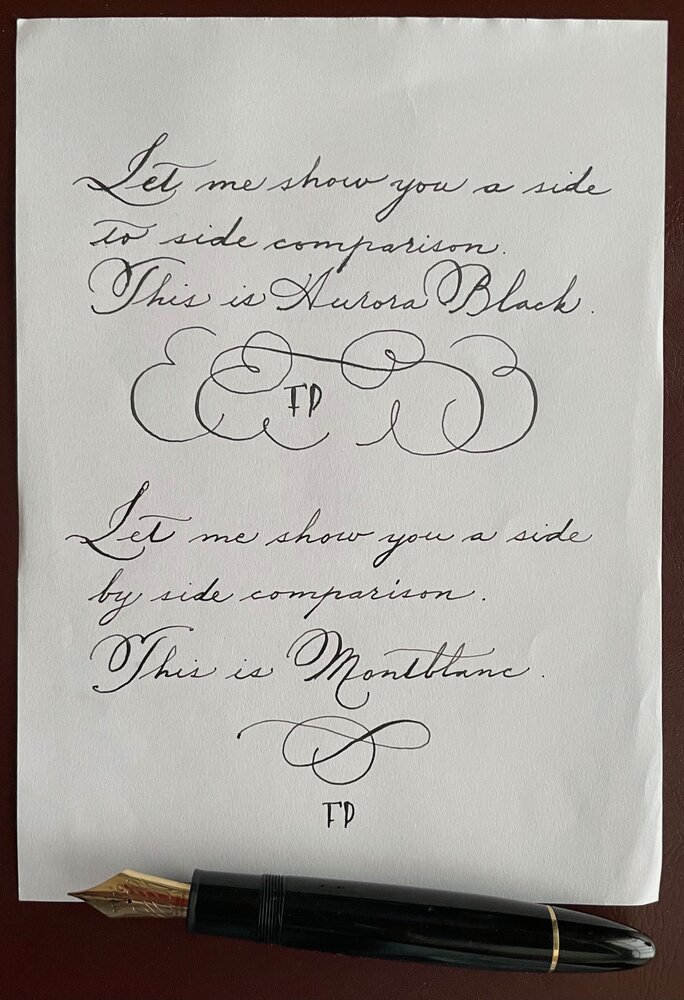 Let me show you a side
to side comparison.
This is Aurora Black.
FP
Let me show you a side
by side comparison.
This is Montblanc.
FP